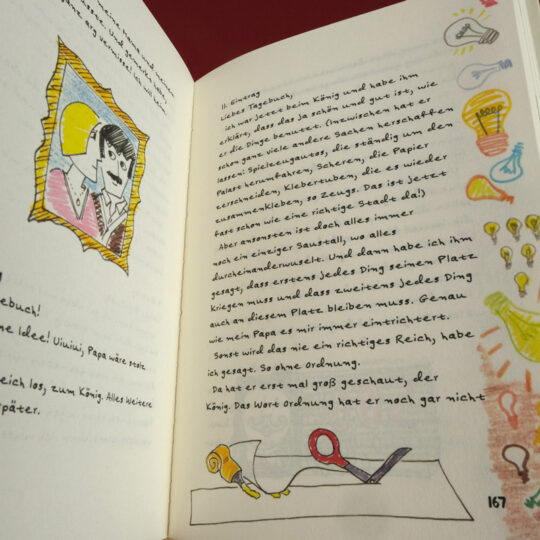 meine Mama und meinen
musste. Und gemerkt habe,
ganz arg vermisse! Ich will
gebuch!
ne Idee! Uiuiui, Papa wäre stolz
eich los, zum König. Alles Weitere
später.
11. Eintrag
Liebes Tagebuch,
ich war jetzt beim König und habe ihm
erklärt, dass das ja schön und gut ist, wie
er die Dinge benutzt. (Inzwischen hat er
schon ganz viele andere Sachen herschaffen
lassen: Spielzeugautos, die ständig um den
Palast herumfahren, Scheren, die Papier
zerschneiden, Klebertuben, die es wieder
zusammenkleben, so Zeugs. Das ist jetzt
fast schon wie eine richtige Stadt da!)
Aber ansonsten ist doch alles immer
noch ein einziger Saustall, wo alles
durcheinanderwuselt. Und dann habe ich ihm
gesagt, dass erstens jedes Ding seinen Platz
kriegen muss und dass zweitens jedes Ding
auch an diesem Platz bleiben muss. Genau
wie mein Papa es mir immer eintrichtert.
Sonst wird das nie ein richtiges Reich, habe
ich gesagt. So ohne Ordnung.
Da hat er erst mal groß geschaut, der
König. Das Wort Ordnung hat er noch gar nicht
167